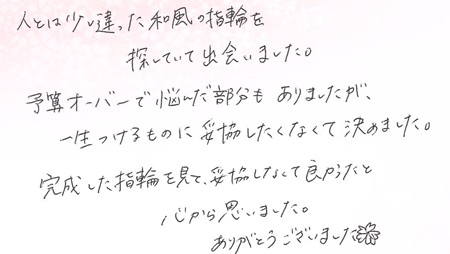 人とは少し違った和風の指輪を
探していて出会いました。
予算オーバーで悩んだ部分もありましたが、
一生つけるものに妥協したくなくて決めました。
完成した指輪を見て、妥協しなくて良かったと
心から思いました。
ありがとうございました